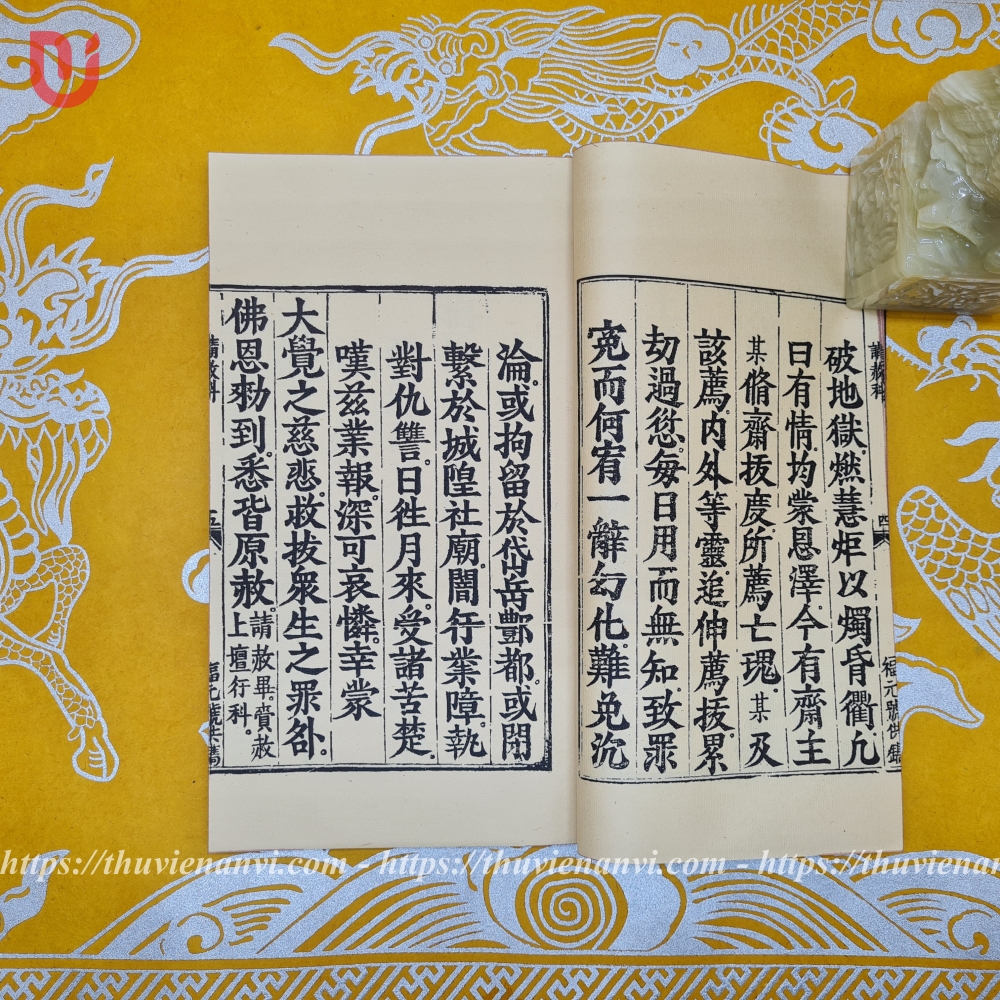 請赦科
四
福元號供鐫
破地獄。燃慧炬以燭昏衢。凢
日有情。均蒙恩澤。今有齋主
某脩齋拔度。所薦亡瑰。某及
該薦。内外等靈。追伸薦拔。累
刼過愆。每日用而無知。致罪
寃而何宥。一辭幻化。難免沉
淪。或拘留於岱岳酆都。或閉
繫於城隍社廟。闇行業障。執
對仇讐。日徃月來。受諸苦楚。
嘆茲業報。深可哀憐。幸蒙
大覺之慈悲。救拔衆生之罪舒。
佛恩勑到。悉皆原赦。請赦畢。賫赦
上壇行科。
請赦科
五
https://thuvienanvi.com - https://thuvienanvi.com - https://thuvienanvi